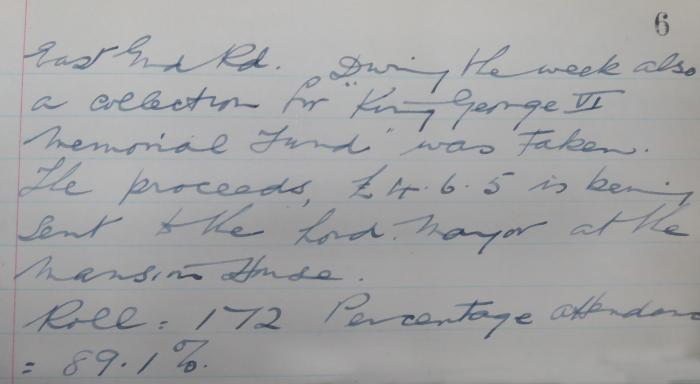 6
East End Rd. During the week also
a collection for "King George VI
Memorial Fund" was taken.
The proceeds, £4.6.5 is being
sent to the Lord Mayor at the
Mansion House.
Roll = 172 Percentage attendance
= 89.1%.